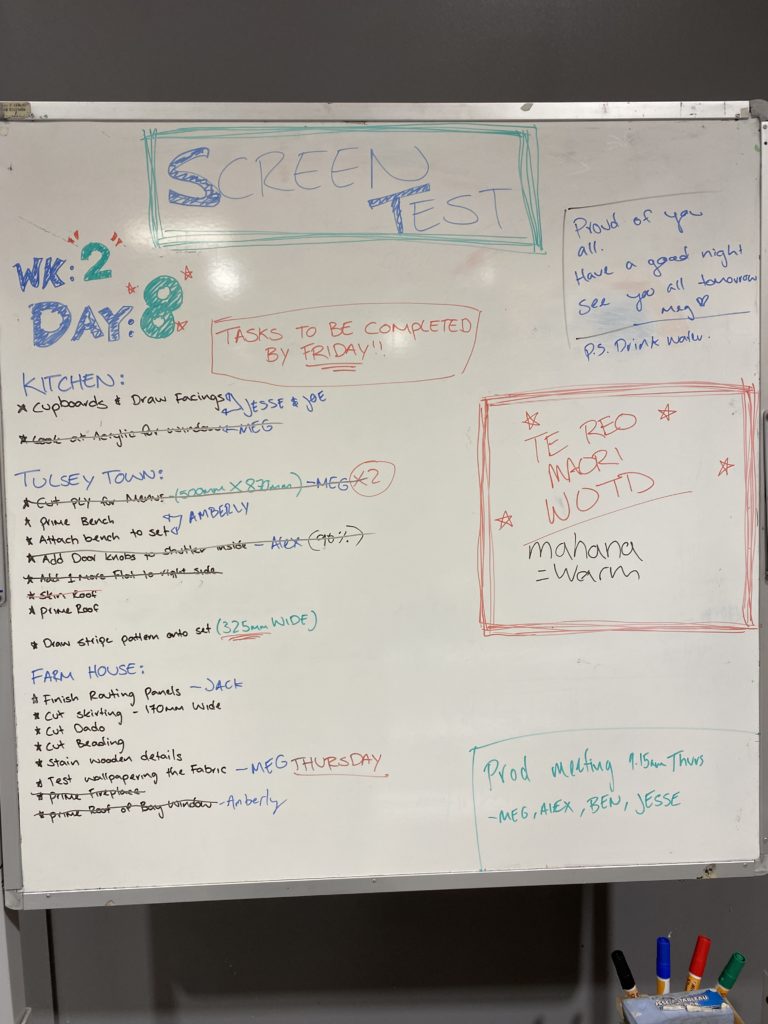 SCREEN
TEST
WK: 2
DAY: 8
Proud of you
all.
Have a good night
see you all tomorrow
Meg
P.S. Drink water.
TASKS TO BE COMPLETED
BY FRIDAY!!
KITCHEN:
* Cupboards & Draw Facings JESSE & JOE
* Look at Acrylic for window - MEG
TULSEY TOWN:
* Cut PLY for Menus - (500mm X 877mm) - MEG X2
* Prime Bench
* Attach bench to set AMBERLY
* Add Door knobs to shutter inside - Alex (90%)
* Add 1 More Flat to right side
* Skin Roof
* Prime Roof
* Draw stripe pattern onto set (325mm WIDE)
FARM HOUSE:
* Finish Routing Panels - JACK
* Cut skirting - 170mm Wide
* Cut Dado
* Cut Beading
* Stain wooden details
* Test wallpapering the Fabric - MEG THURSDAY
* Prime Fireplace
* Prime Roof of Bay Window - Amberly
TE REO
MAORI
WOTD
mahana
= warm
Prod meeting 9.15am Thurs
- MEG, ALEX, BEN, JESSE